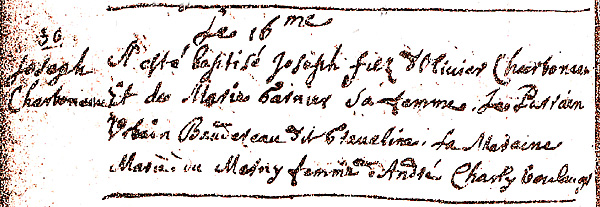 Le 16me
30
Joseph
Charboneau
A esté baptisé Joseph filz d'Olivier Charboneau
Et de Marie Garnier sa femme. Le Parrain
Urbain Baudereau dit Graveline. la Maraine
Marie du Mesny femme d'André Charly